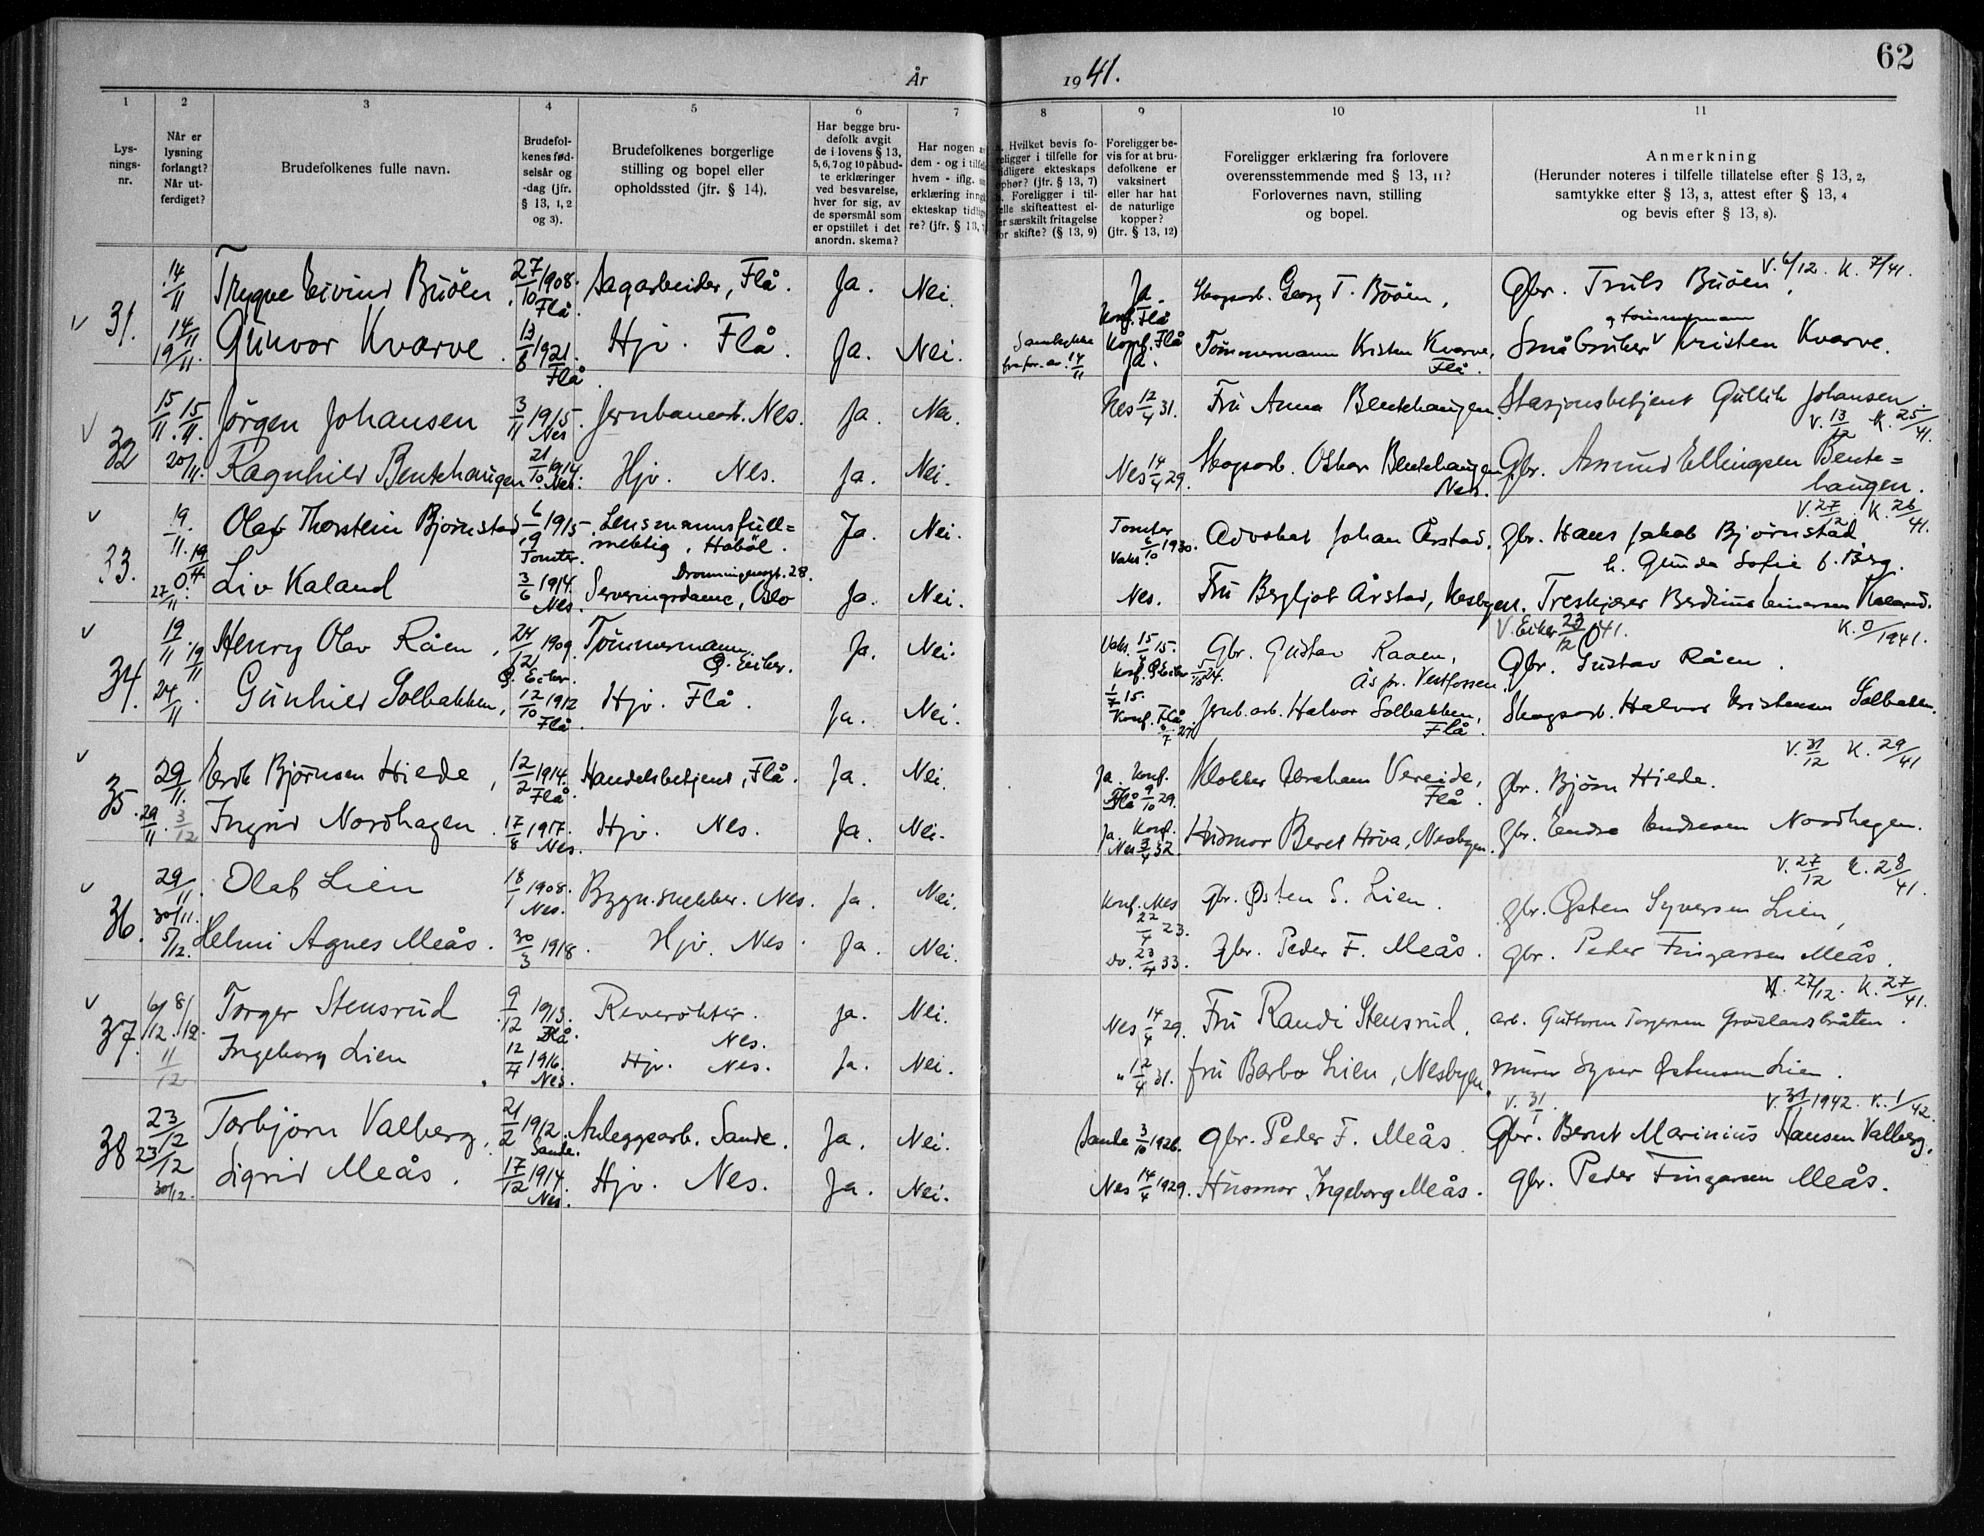 62
År 1941.
1 2 3 4 5 6 7 8 9 10 11
Lys-
nings-
nr.
Når er
lysning
forlangt?
Når ut-
ferdiget?
Brudefolkenes fulle navn.
Brudefol-
kenes fød-
selsår og
-dag (jfr.
§ 13, 1, 2
og 3).
Brudefolkenes borgerlige
stilling og bopel eller
opholdssted (jfr. § 14).
Har begge bru-
defolk avgit
de i lovens § 13,
5, 6, 7 og 10 påbud-
te erklæringer
ved besvarelse,
hver for sig, av
de spørsmål som
er opstillet i det
anordn. skema?
Har nogen
dem - og i tilfel
hvem - iflg.
erklæring inng
ekteskap tidlige
re? (jfr. § 13, 7
a. Hvilket bevis fo-
religger i tilfelle for
tidligere ekteskaps
ophør? (jfr. § 13, 7)
b. Foreligger i til-
felle skifteattest el-
ler særskilt fritagelse
for skifte? (§ 13, 9)
Foreligger be-
vis for at bru-
defolkene er
vaksinert
eller har hat
de naturlige
kopper?
(jfr. § 13, 12)
Foreligger erklæring fra forlovere
overensstemmende med § 13, 11?
Forlovernes navn, stilling
og bopel.
Anmerkning
(Herunder noteres i tilfelle tillatelse efter § 13, 2,
samtykke efter § 13, 3, attest efter § 13, 4
og bevis efter § 13, 8).
V. 6/12. K. 7/41.
31. 14/11 Trygve Eivind Buøen 27/10 1908. Flå. Sagarbeider, Flå. Ja. Nei. Ja. Konf. Flå Skogsarb. Georg T. Bøøen, Gbr. Truls Buøen,
og tømmermann
14/11 19/11. Gunvor Kvarve. 13/8 1921. Flå. Hjv. Flå. Ja. Nei. Samtykke fra for. av 14/11 Konf. Flå Ja. Tømmermann Kristen Kvarve, Flå. Småbruker Kristen Kvarve.
32 15/11. 15/11. Jörgen Johansen 3/11 1915. Nes Jernbanearb. Nes. Ja. Nei. Nes 12/4 31. Fru Anna Bentehaugen. Stasjonsbetjent Gullik Johansen.
V. 13/12 K. 25/41.
20/11. Ragnhild Bentehaugen 21/10 1914. Nes. Hjv. Nes. Ja. Nei. Nes 14/4 29. Skogsarb. Oskar Bentehaugen Nes. Gbr. Amund Ellingsen Bente=
haugen.
V. 27/12. K. 26/41.
33. 19/11. 19/11 Olaf Thorstein Bjørnstad 6/9 1915. Tomter. Lensmannsfull=
mektig, Hobøl. Ja. Nei. Tomter 6/10 1930. Vaks. Advokat Johan Årstad, gbr. Hans Jakob Bjørnstad
h. Gunda Sofie f. Berg.
27/11 Liv Kaland 3/6 1914. Nes. Dronningensgt. 28.
Serveringsdame, Oslo Ja. Nei. Nes. Fru Bergljot Årstad, Nesbyen. Treskjærer Berdinus Einarsen Kaland.
V. Eiker 23/12 1941. K. 0/1941.
34. 19/11. 19/11 Henry Olav Råen, 24/12 1909. Ø. Eiker. Tømmermann, Ø. Eiker. Ja. Nei. Vaks. 15/4 15. Konf. Ø. Eiker 5/10 24. Gbr. Gustav Raaen,
Ås pr. Vestfossen. Gbr. Gustav Råen.
24/11. Gunhild Solbakken, 12/10 1912 Flå. Hjv. Flå. Ja. Nei. 1/7 15. Konf. Flå Jernb. arb. Halvor Solbakken, Flå. Skogsarb. Halvor Kristensen Solbakken.
V. 31/12 K. 29/41
35. 29/11. Erik Bjørnsen Hiede, 12/2 1914. Flå. Handelsbetjent, Flå. Ja. Nei. Ja. Konf. Flå 9/10 29. Klokker Abraham Vereide, Flå. gbr. Bjørn Hiede.
29/11. 3/12 Ingrid Nordhagen. 17/8 1917. Nes. Hjv. Nes. Ja. Nei. Ja. Konf. Nes 3/4 32. Husmor Beret Hóva, Nesbyen. gbr. Endre Endresen Nordhagen.
V. 27/12 K. 28/41.
36. 29/11. Olaf Lien 18/1 1908. Nes. Bygn.snekker. Nes. Ja. Nei. Konf. Nes 22/4 23. Gbr. Østen S. Lien. gbr. Østen Syversen Lien,
30/11. 5/12. Helmi Agnes Meås. 30/3 1918. Hjv. Nes. Ja. Nei. do. 23/4 33. Gbr. Peder F. Meås. gbr. Peder Fingarsen Meås.
V. 27/12. K. 27/41.
37. 6/12. 8/12. Torger Stensrud 9/12 1913. Flå. Reverøkter. Nes. Ja. Nei. Nes 14/4 29. Fru Randi Stensrud, arb. Guttorm Torgersen Grøslandsbråten.
11/12 Ingeborg Lien. 12/4 1916. Nes. Hjv. Nes. Ja. Nei. " 12/4 31. fru Barbo Lien, Nesbyen. murer Syver Østensen Lien.
V. 31/1. V. 31/1 1942. K. 1/42.
38 23/12 Torbjørn Valberg. 21/2 1912. Sande. Anleggsarb. Sande. Ja. Nei. Sande 3/10 1926. Gbr. Peder F. Meås. Gbr. Bernt Marinius Hansen Valberg.
23/12 30/12. Sigrid Meås. 17/12 1914. Nes. Hjv. Nes. Ja. Nei. Nes 14/4 1929. Husmor Ingeborg Meås. gbr. Peder Fingarsen Meås.